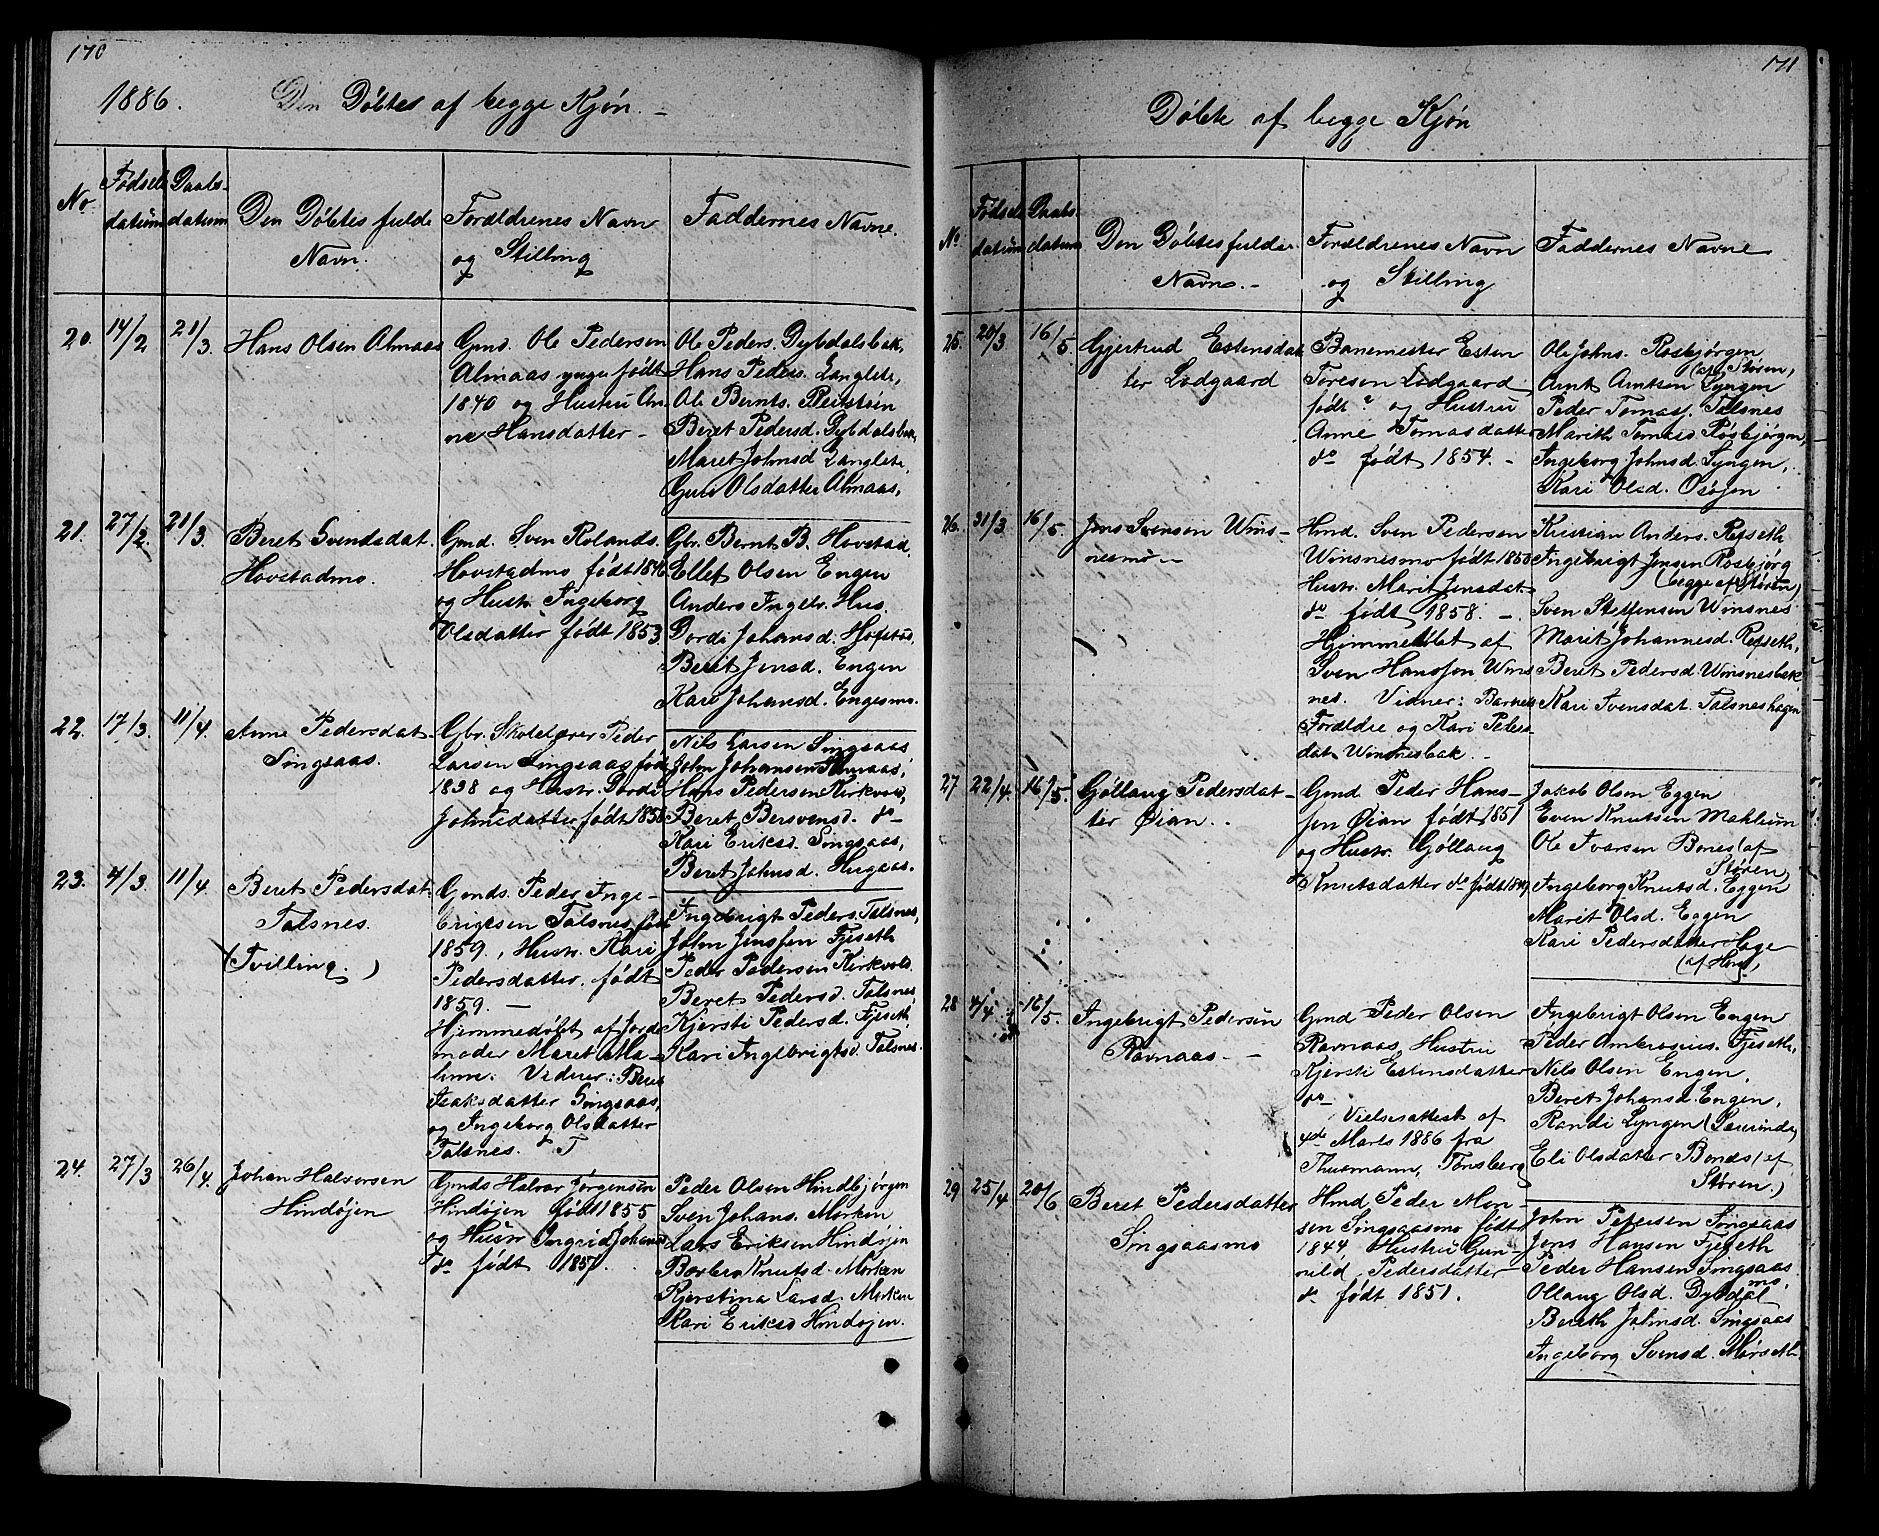 170
1886. Den Döbtes af begge Kjøn. –
No.
Fødsels datum
Daabs- datum
Den Döbtes fulde
Navn.
Forældrenes Navn
og Stilling
Faddernes Navne.
20. 14/2 21/3. Hans Olsen Almaas
Gmd. Ole Pedersen
Almaas yngre født
1840 og Hustru An-
ne Hansdatter –
Ole Peders. Dybdalsbak,
Hans Peders. Langlete,
Ole Bernts.
Beret Pedersd. Dybdalsbak,
Maret Johnsd Langlete,
Guru Olsdatter Almaas,
21. 27/2. 21/3. Beret Svendsdat.
Hovstadmo.
Gmd. Sven Rolands.
Hovstadmo født
og Hustr. Ingeborg
Olsdatter født 1853
Gbr. Bernt B. Hovstad,
Ellef Olsen Engen
Anders Ingebr. Hus.
Dordi Johansd. Hofstad,
Beret Jensd. Engen
Kari Johansd. Engesmo.
22. 17/3. 11/4. Anne Pedersdat
Singsaas.
Gbr. Skolelærer Peder
Larsen Singsaas født
1838 og Hustr. Dordi
Johnsdatter født
Nils Larsen Singsaas
John Johansen
Hans Pedersen Kirkvold,
Beret Bersvensd. do –
Kari Eriksd. Singsaas,
Beret Johnsd. Hugaas.
23. 4/3. 11/4. Beret Pedersdat.
Talsnes.
(Tvilling)
Gmds. Peder Inge-
brigtsen Talsnes født
1859., Hustr. Kari
Pedersdatter. født
1859. –
Hjemmedøbt af Jorde
moder Maret Ma-
lum. Vidner: Beret
Isaksdatter Singsaas,
og Ingeborg Olsdatter
Talsnes.
Ingebrigt Peders. Talsnes,
John Jensen Fjeseth
Peder Pedersen Kirkvold.
Beret Pedersd. Talsnes,
Kjersti Pedersd. Fjeseth
Kari Ingebrigtsd. Talsnes.
24. 27/3 26/4. Johan Halvorsen
Hindøjen
Gmds Halvor Jørgensen
Hindøjen født 1855
og Hustr Ingrid Johansd
do født
Peder Olsen Hindbjørgen
Sven Johans. Morken
Lars Eriksen Hindøjen
Barbro Knutsd. Morken
Kjerstina Larsd. Morken
Kari Eriksd Hindøjen.
171
Døbte af begge Kjøn
No
Fødsels datum
Daabs datum
Den Döbtes fulde
Navn. –
Forældrenes Navn
og Stilling
Faddernes Navne
25. 20/3 16/5. Gjertrud Estensdat
ter Lodgaard
Banemester Esten
Toresen Lodgaard
født ? og Hustru
Anne Tomasdatter
do født 1854. –
Ole Johns. Rosbjørgen
(af Støren,
Arnt Arntsen Lyngen
Peder Tomass. Talsnes
Marith Tomasd. Rosbjørgen,
Ingeborg Johnsd. Lyngen,
Kari Olsd. Osøjen
26. 31/3 16/5. Jens Svensen Wins-
nesmo –
Hmd. Sven Pedersen
Winsnesmo født 1853
Hustr. Marit Jensdat.
do født 1858. –
Hjemmedøbt af
Sven Hanssen Wins
nes. Vidner: Barnets
Forældre og Kari Peders
dat. Winsnesbak. –
Kristian Anders. Refseth
Ingebrigt Jensen Rosbjørg
(begge af Støren)
Sven Steffensen Winsnes
Marit Johannesd. Refseth,
Beret Pedersd. Winsnesbak,
Kari Svensdat. Talsneshagen
27 22/4. 16/5. Gøllaug Pedersdat –
ter Øian.
Gmd Peder Hans-
sen Øian født 1851
og Hustr. Gøllaug
Knutsdatter do født
Jakob Olsen Eggen
Even Knutsen Mahlum
Ole Ivarsen Bones (af
Støren)
Ingeborg Knutsd. Eggen
Marit Olsd. Eggen
Kari Pedersdatter Hage
28 4/4 16/5. Ingebrigt Pedersen
Ravnaas –
Gmd Peder Olsen
Ravnaas, Hustru
Kjersti Estensdatter
do –
Vielsesattest af
4de Marts 1886 fra
Thurmann, Tønsberg
Ingebrigt Olsen Engen
Peder Ambrosius. Fjeseth,
Nils Olsen Engen,
Beret Johansd. Engen,
Randi Lyngen
Eli Olsdatter Bones (af
Støren.)
29 25/4 20/6 Beret Pedersdatter
Singsaasmo
Hmd. Peder Mon-
sen Singsaasmo født
1844, Hustru Gun-
nild Pedersdatter
do født 1851.
John Petersen Singsaas
Jens Hansen Fjeseth
Peder Hansen Singsaas
mo,
Ollaug Olsd. Dybdal
Bereth Johnsd. Singsaas
Ingeborg Svensd.